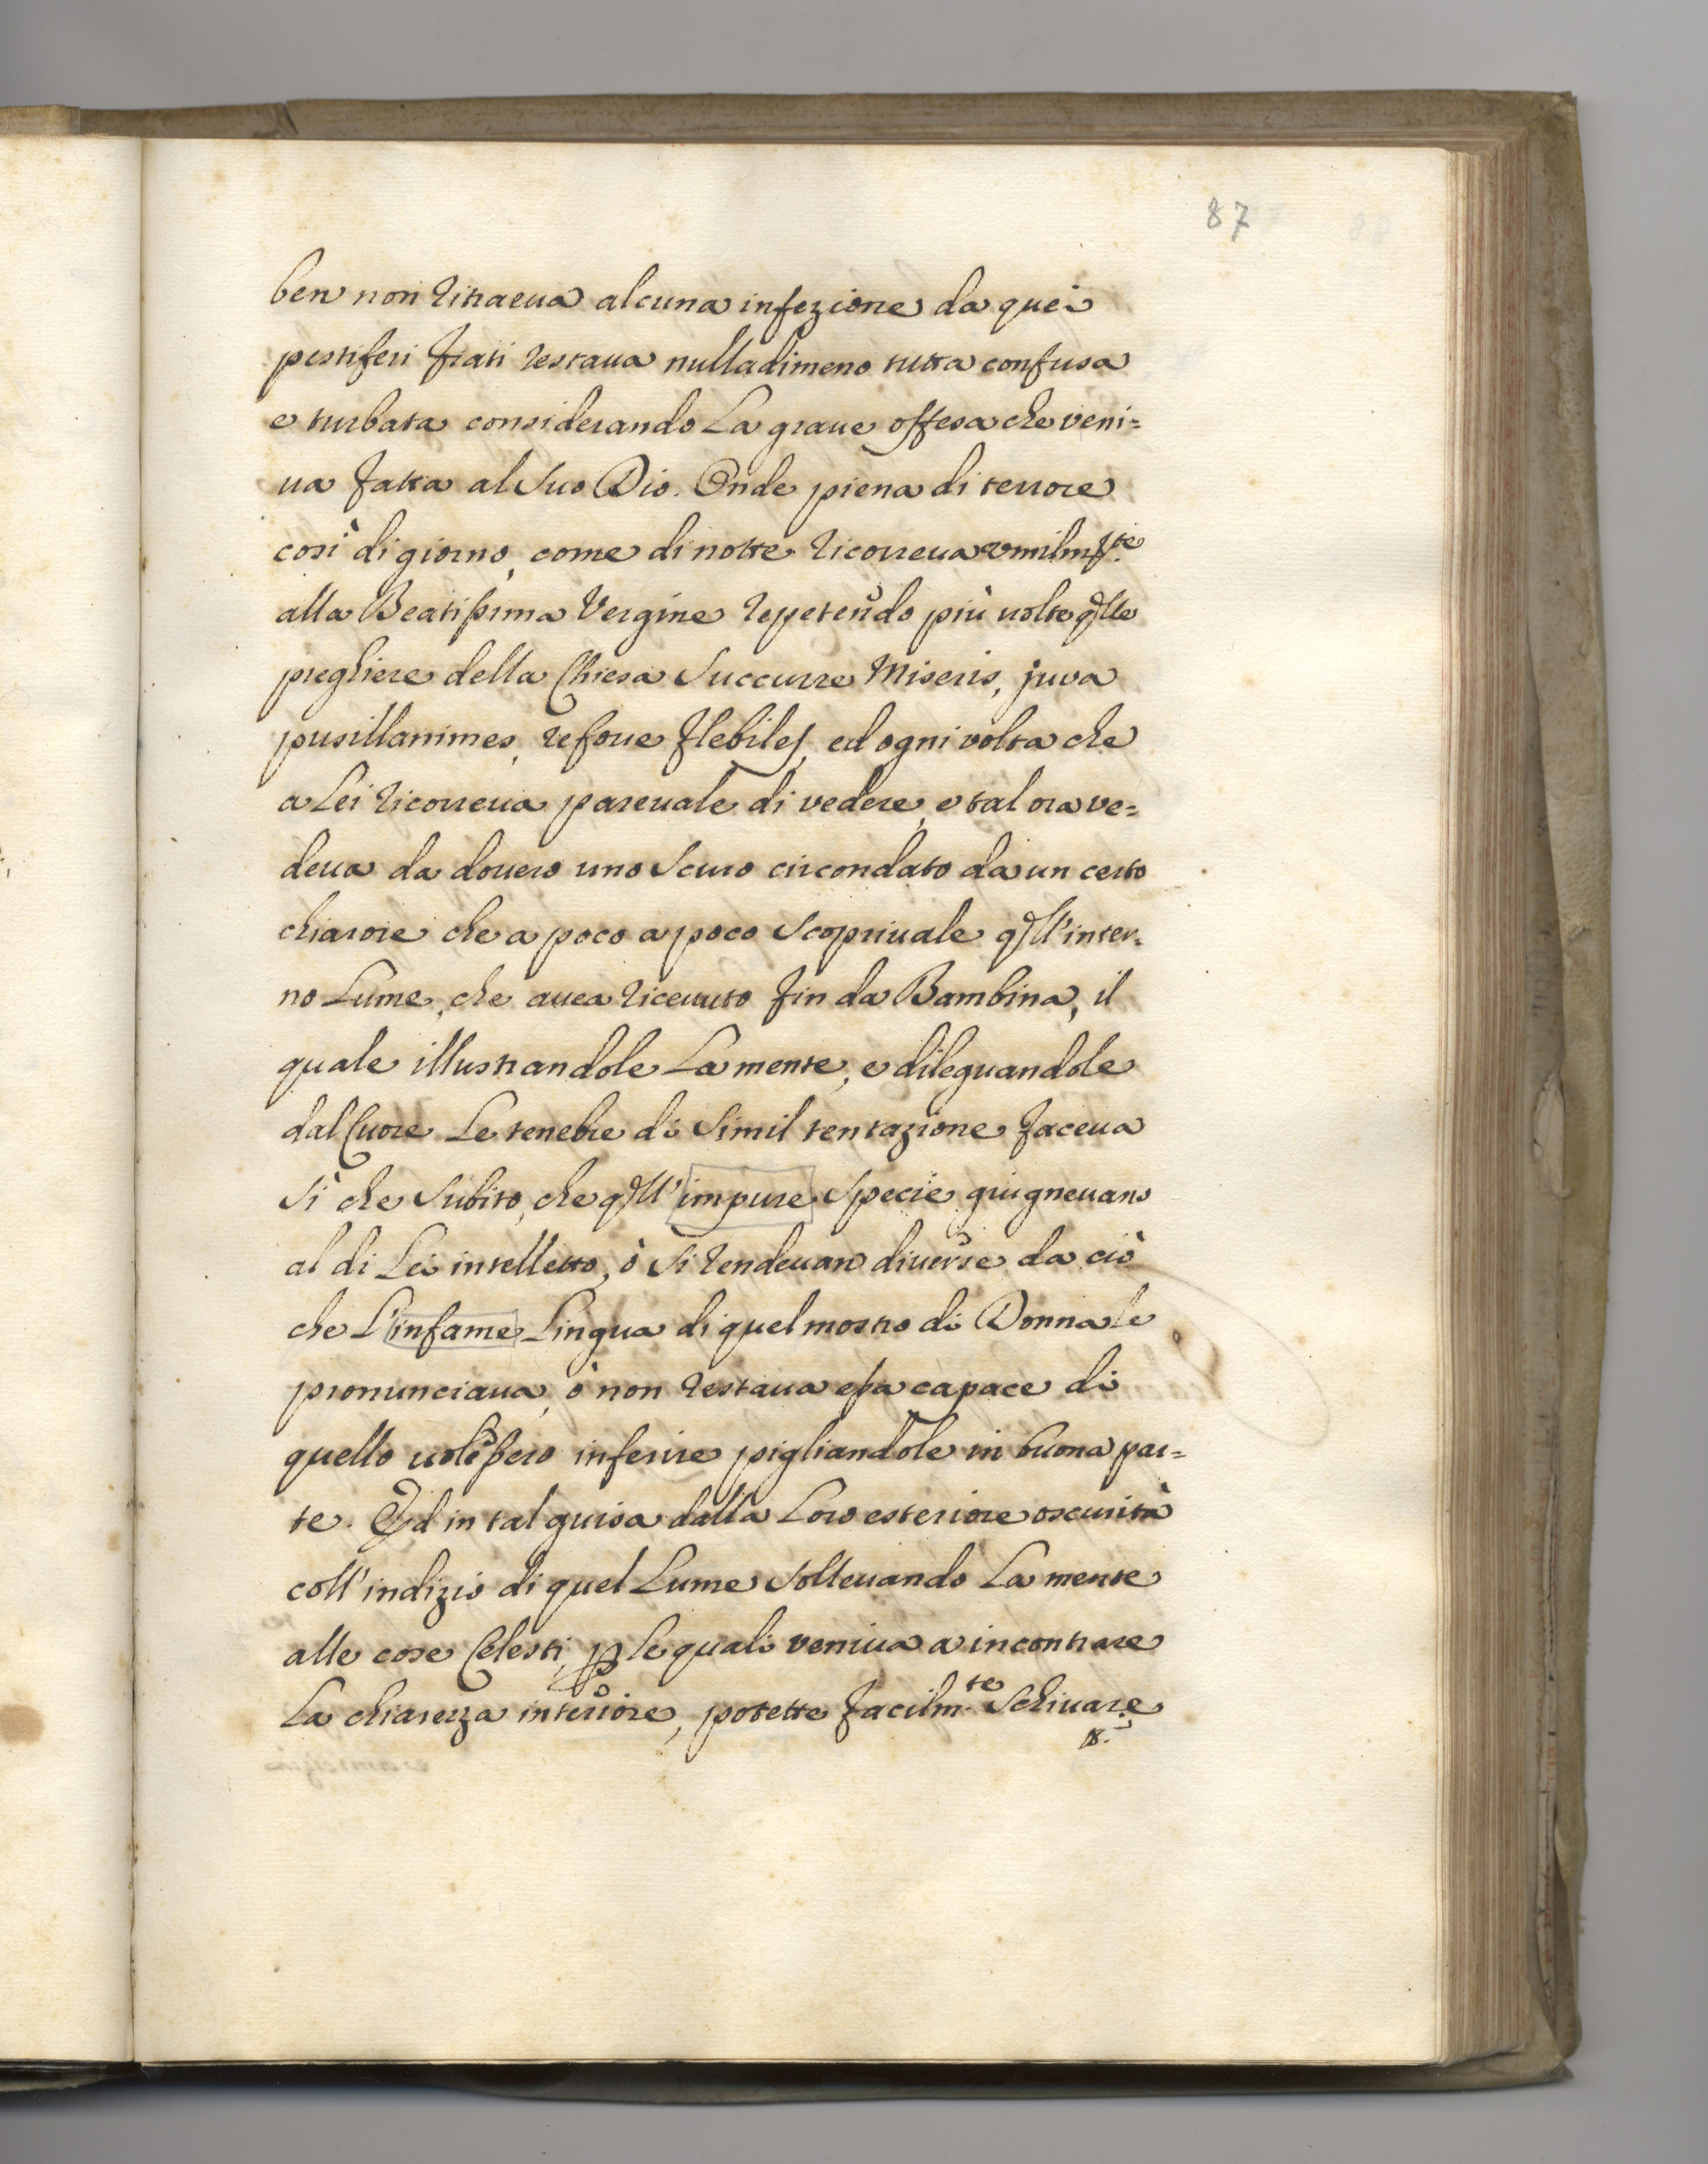 87
ben non ritraeua alcuna infezione da quei
pestiferi fiati restaua nulladimeno tutta confusa
e turbata considerando La graue offesa che veni=
ua fatta al Suo Dio. Onde piena di terrore
così di giorno, come di notte ricorreua vmilmte.
alla Beatissima Vergine repetendo più uolte qlle
preghiere della Chiesa Succurre Miseris, juva
pusillanimes, refove flebiles, ed ogni volta che
a Lei ricorreua pareuale di vedere, e tal ora ve=
deua da douero uno Scuro circondato da un certo
chiarore che a poco a poco Scopriuale qll'inter=
no Lume, che auea riceuuto fin da Bambina, il
quale illustrandole La mente, e dileguandole
dal Cuore Le tenebre di Simil tentazione faceua
Sì che Subito, che qll'impure Specie giugneuano
al di Lei intelletto, ò Si rendeuano diverse da ciò
che L'infame Lingua di quel mostro di Donna le
pronunciaua, ò non restaua essa capace di
quello uolessero inferire pigliandole in buona par=
te. Ed in tal guisa dalla Loro esteriore oscurità
coll'indizio di quel Lume Solleuando La mente
alle cose Celesti, p le quali veniua a incontrare
La chiarezza interiore, potette facilm.te Schiuare